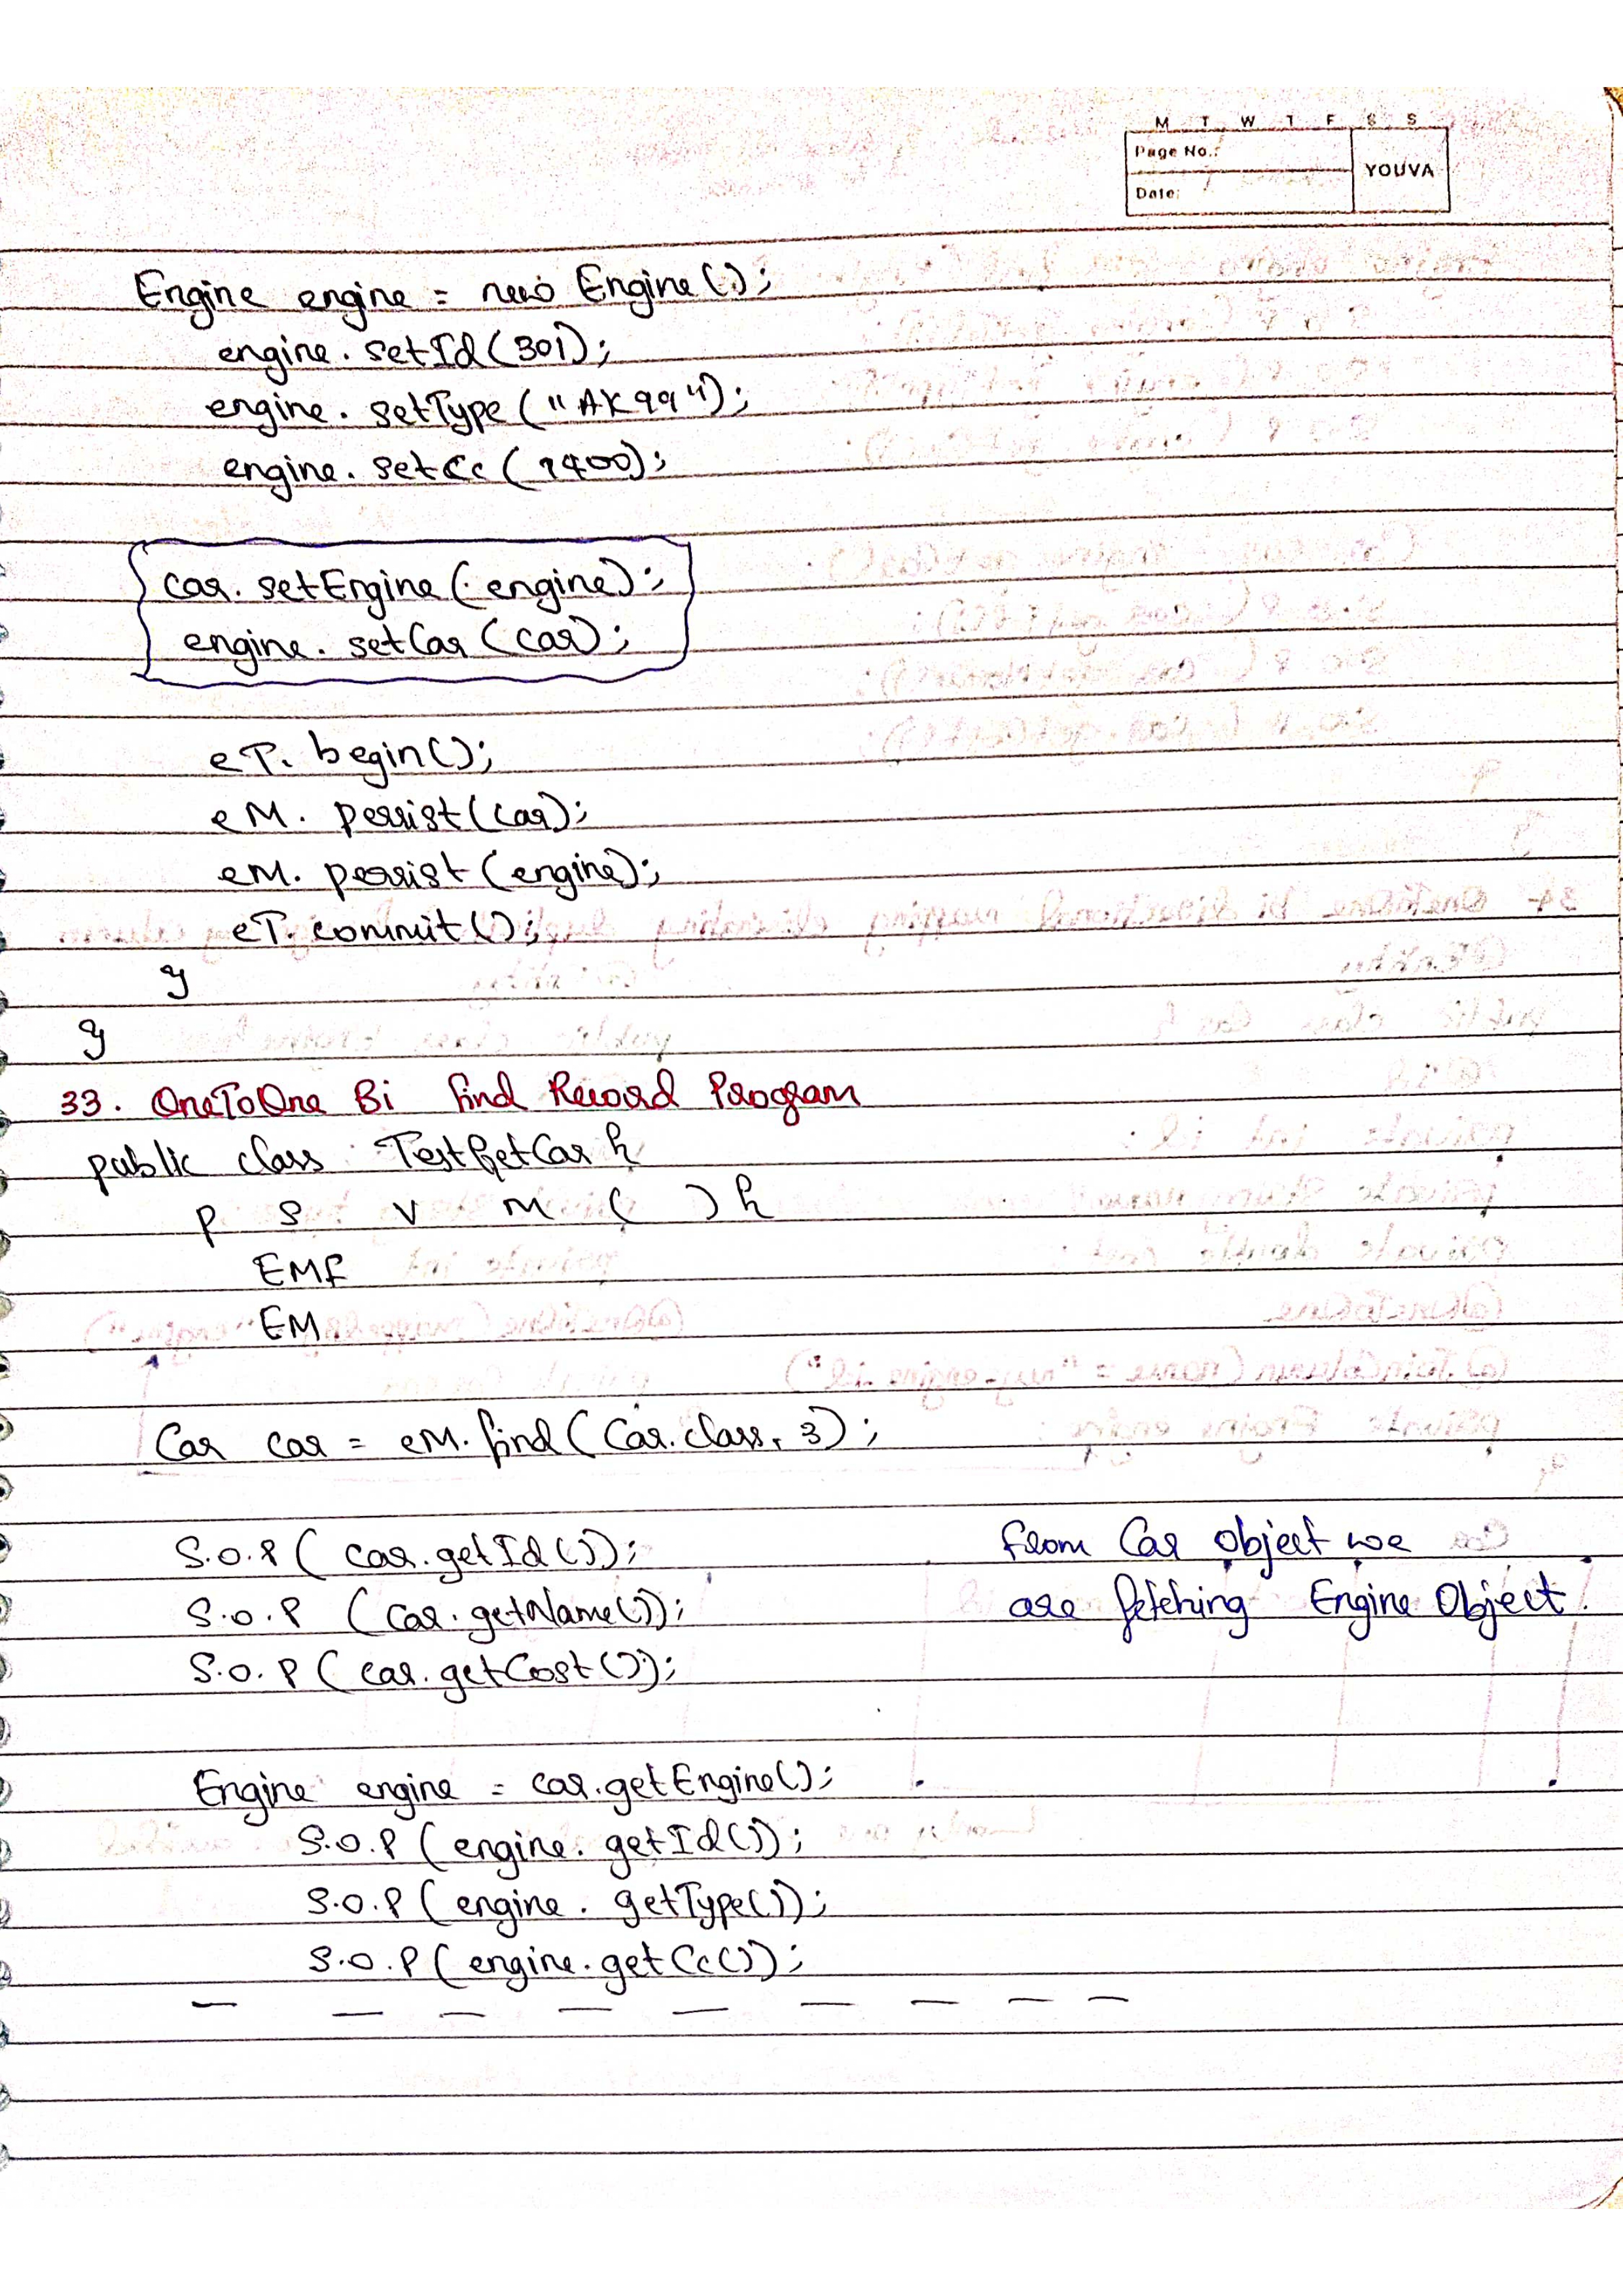 M T W T F S S
Page No.:
YOUVA
Date:
Engine engine = new Engine();
engine. setId(301);
engine. setType("AK99");
engine. setCc(1400);
car. setEngine(engine);
engine. setCar(car);
eT. begin();
eM. persist(car);
eM. persist(engine);
eT. commit();
}
}
33. OneToOne Bi find Record Program
public class TestGetCar {
p s v m ( ) {
EMF
EM
Car car = eM.find(Car.class, 3);
S.O.P( car.getId());
from Car Object we
S.O.P (car.getName());
are fetching Engine Object.
S.O.P(car.getCost());
Engine engine = car.getEngine();
S.O.P(engine. getId());
S.O.P(engine. getType());
S.O.P(engine. getCc());